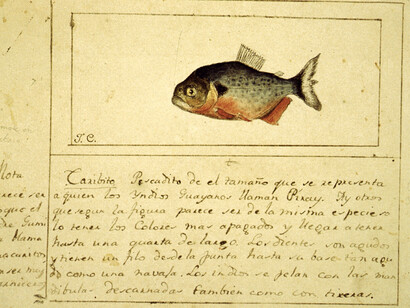 J.C.
Caribito Pescadito de el tamaño que se representa
a quien los Yndios Guayanos llaman Piray. Ay otros
que segun la figura parece ser de la misma especie so
lo tener los Colores mas apagados y llegar a tener
hasta una quarta de largo. Los dientes son agudos
y tienen un filo desde la punta hasta su base tan agu
do como una navaja. Los indios se pelan con las man
dibulas descarnadas tambien como con tixeras.
Nota